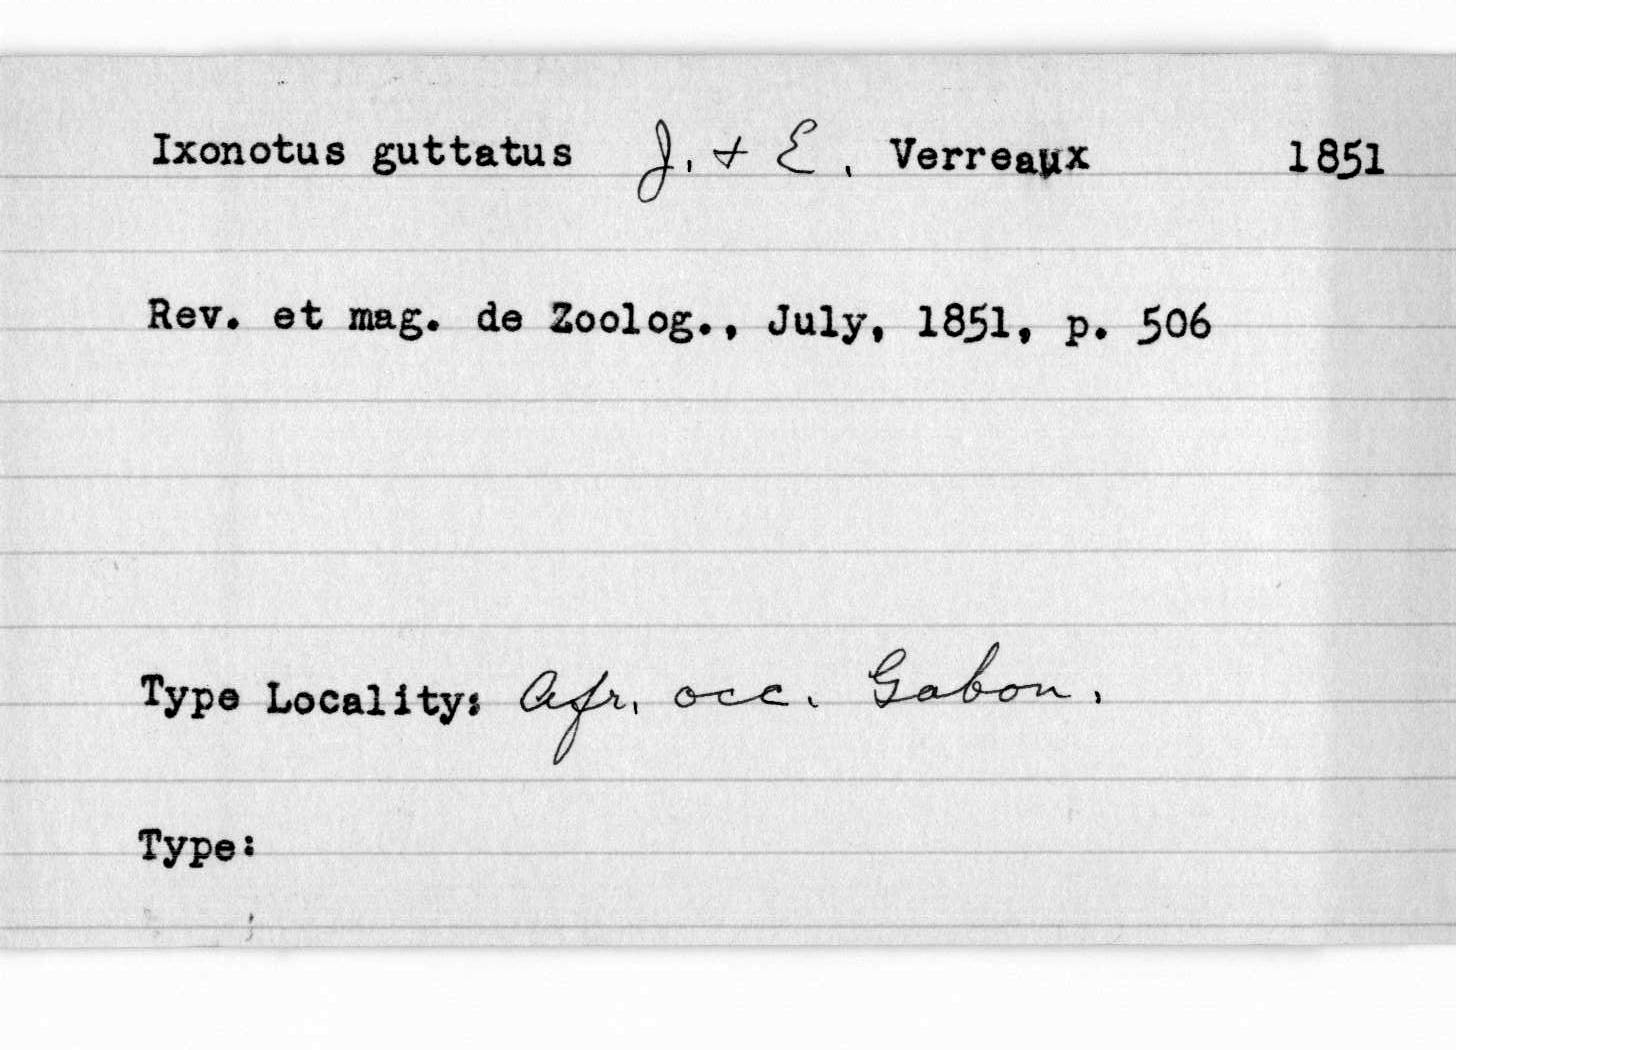 Ixonotus guttatus J. + E. Verreaux 1851
Rev. et mag. de Zoolog., July, 1851, p. 506
Type Locality: Afr. occ. Gabon.
Type: